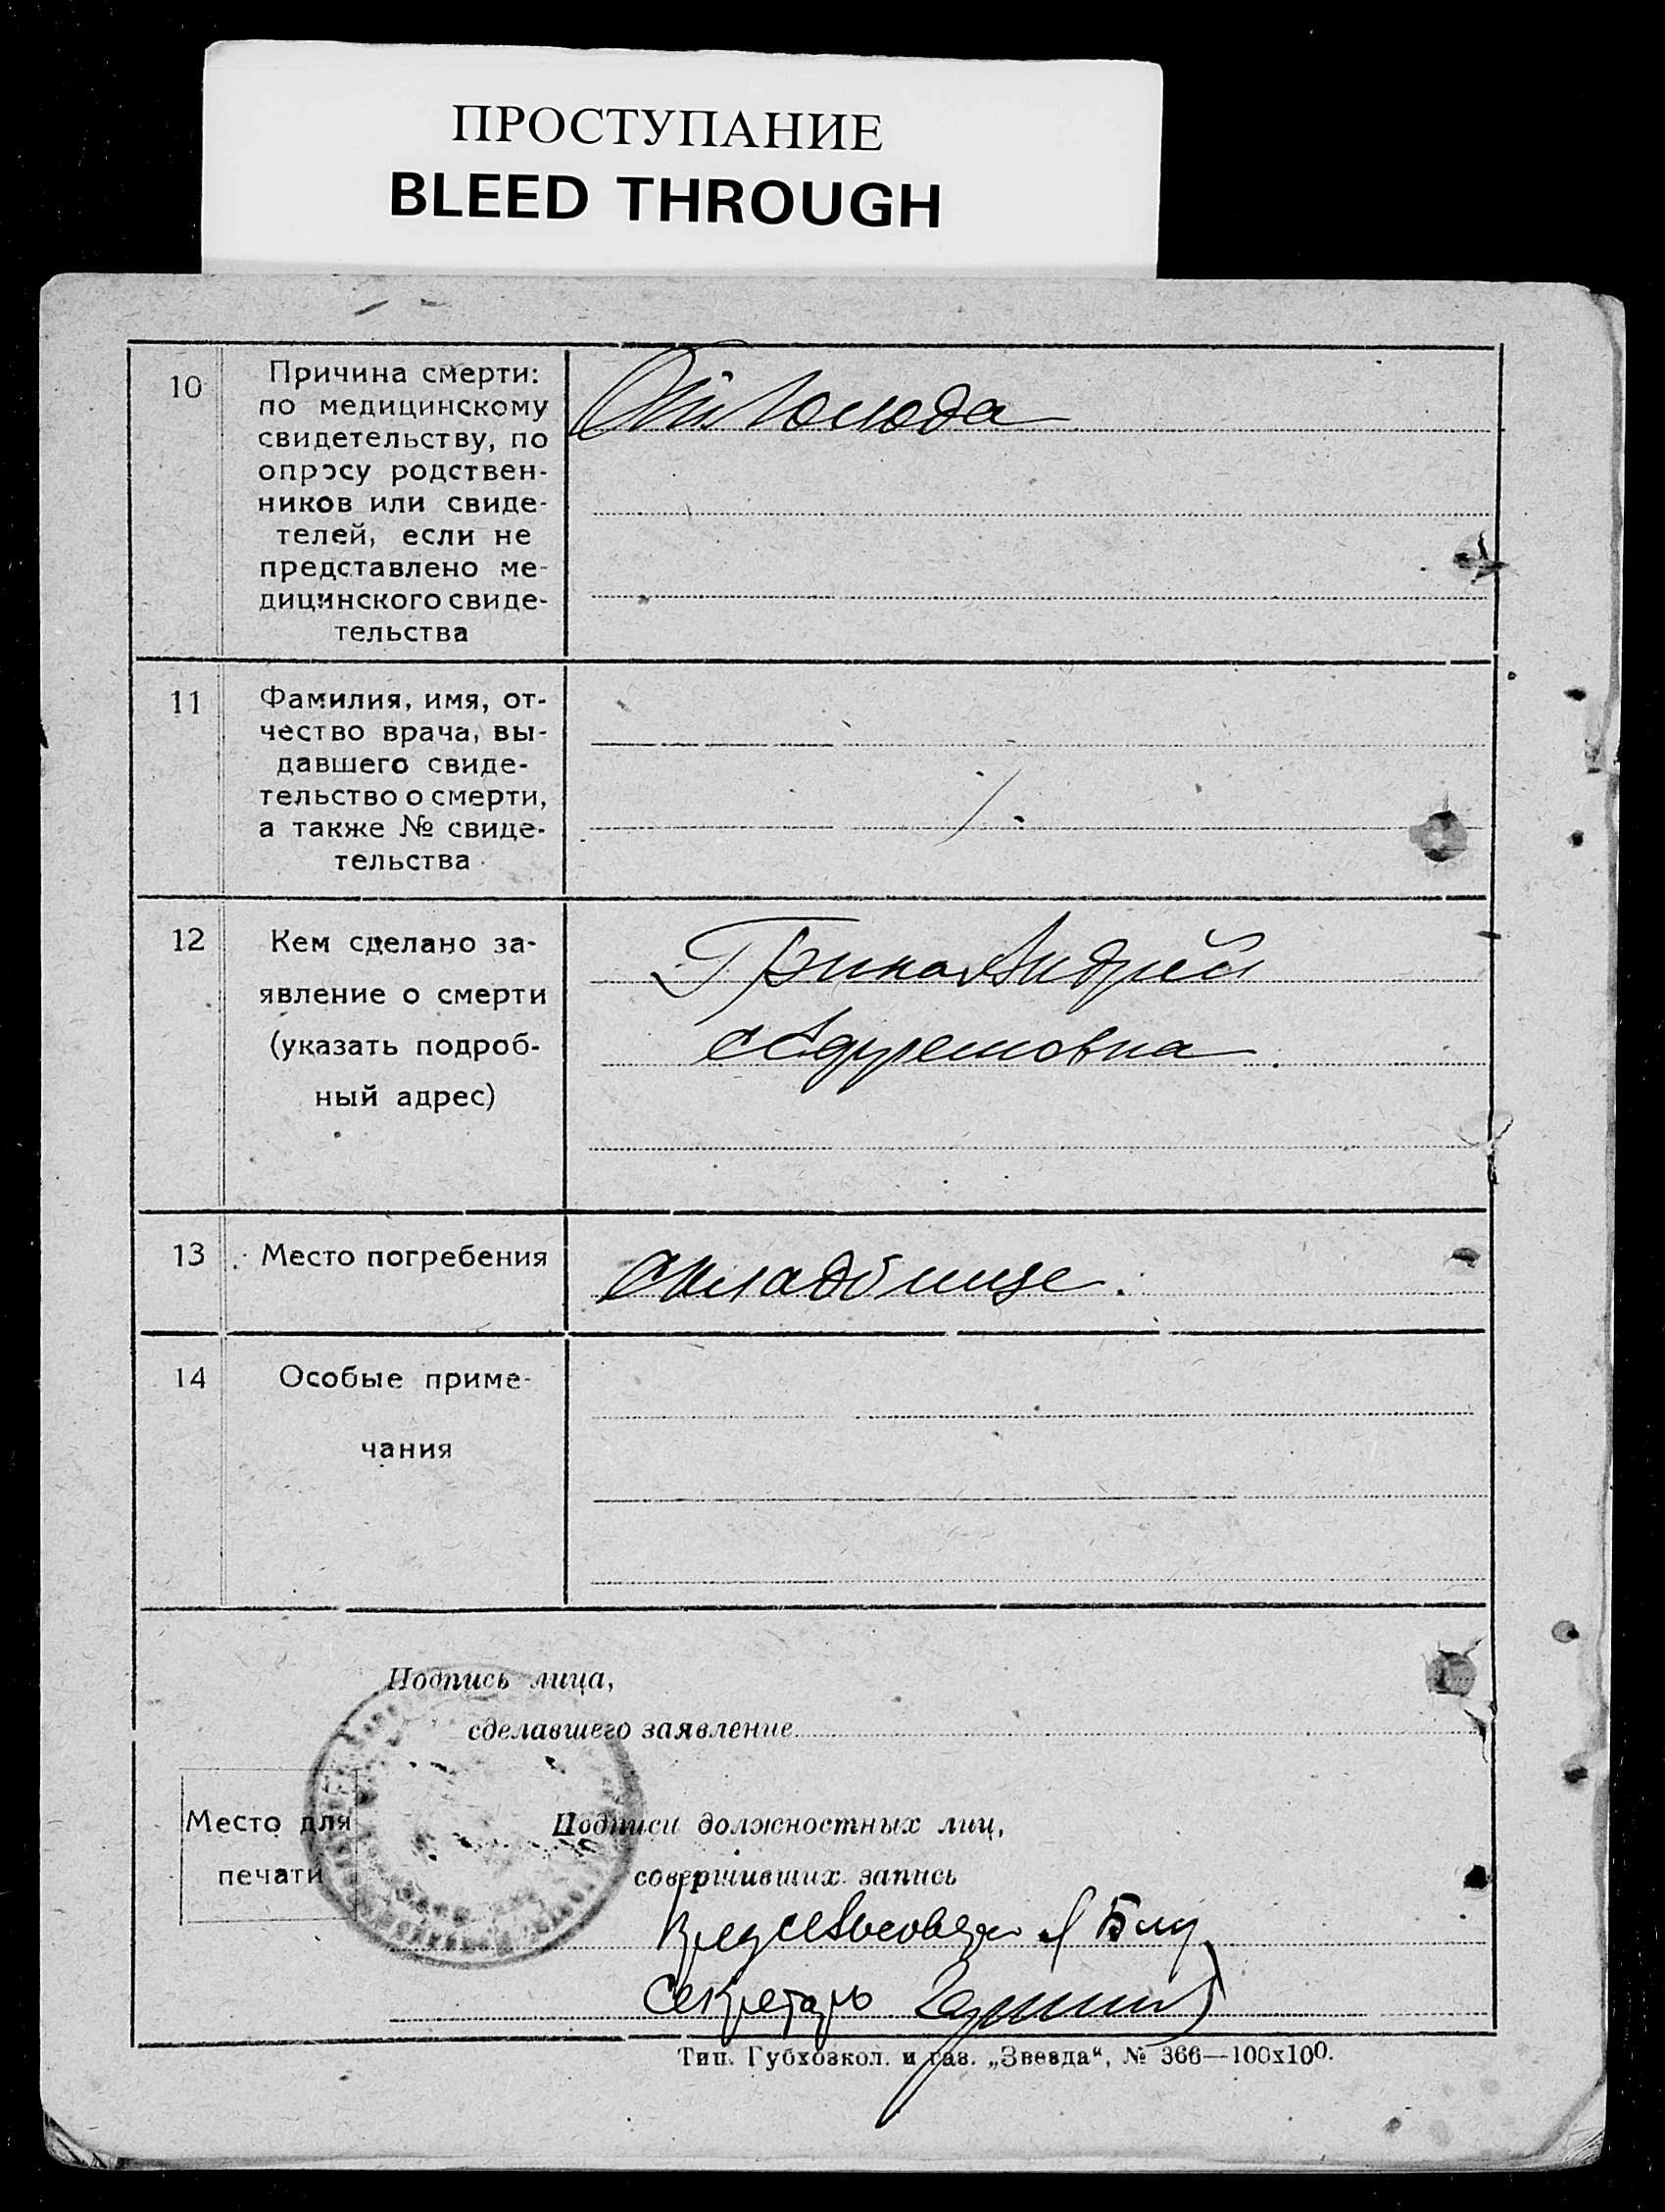 ПРОСТУПАНИЕ
BLEED THROUGH
10
Причина смерти:
по медицинскому
свидетельству, по
опросу родствен-
ников или свиде-
телей, если не
представлено ме-
дицинского свиде-
тельства
От голода
11
Фамилия, имя, от-
чество врача, вы-
давшего свиде-
тельство о смерти,
а также № свиде-
тельства
12
Кем сделано за-
явление о смерти
(указать подроб-
ный адрес)
Андрей
13
Место погребения
14
Особые приме-
чания
Подпись лица,
сделавшего заявление
Место для
печати
Подписи должностных лиц,
совершивших запись
Секретарь
Тип. Губхозкол. и газ. „Звезда“, № 366—100х100.